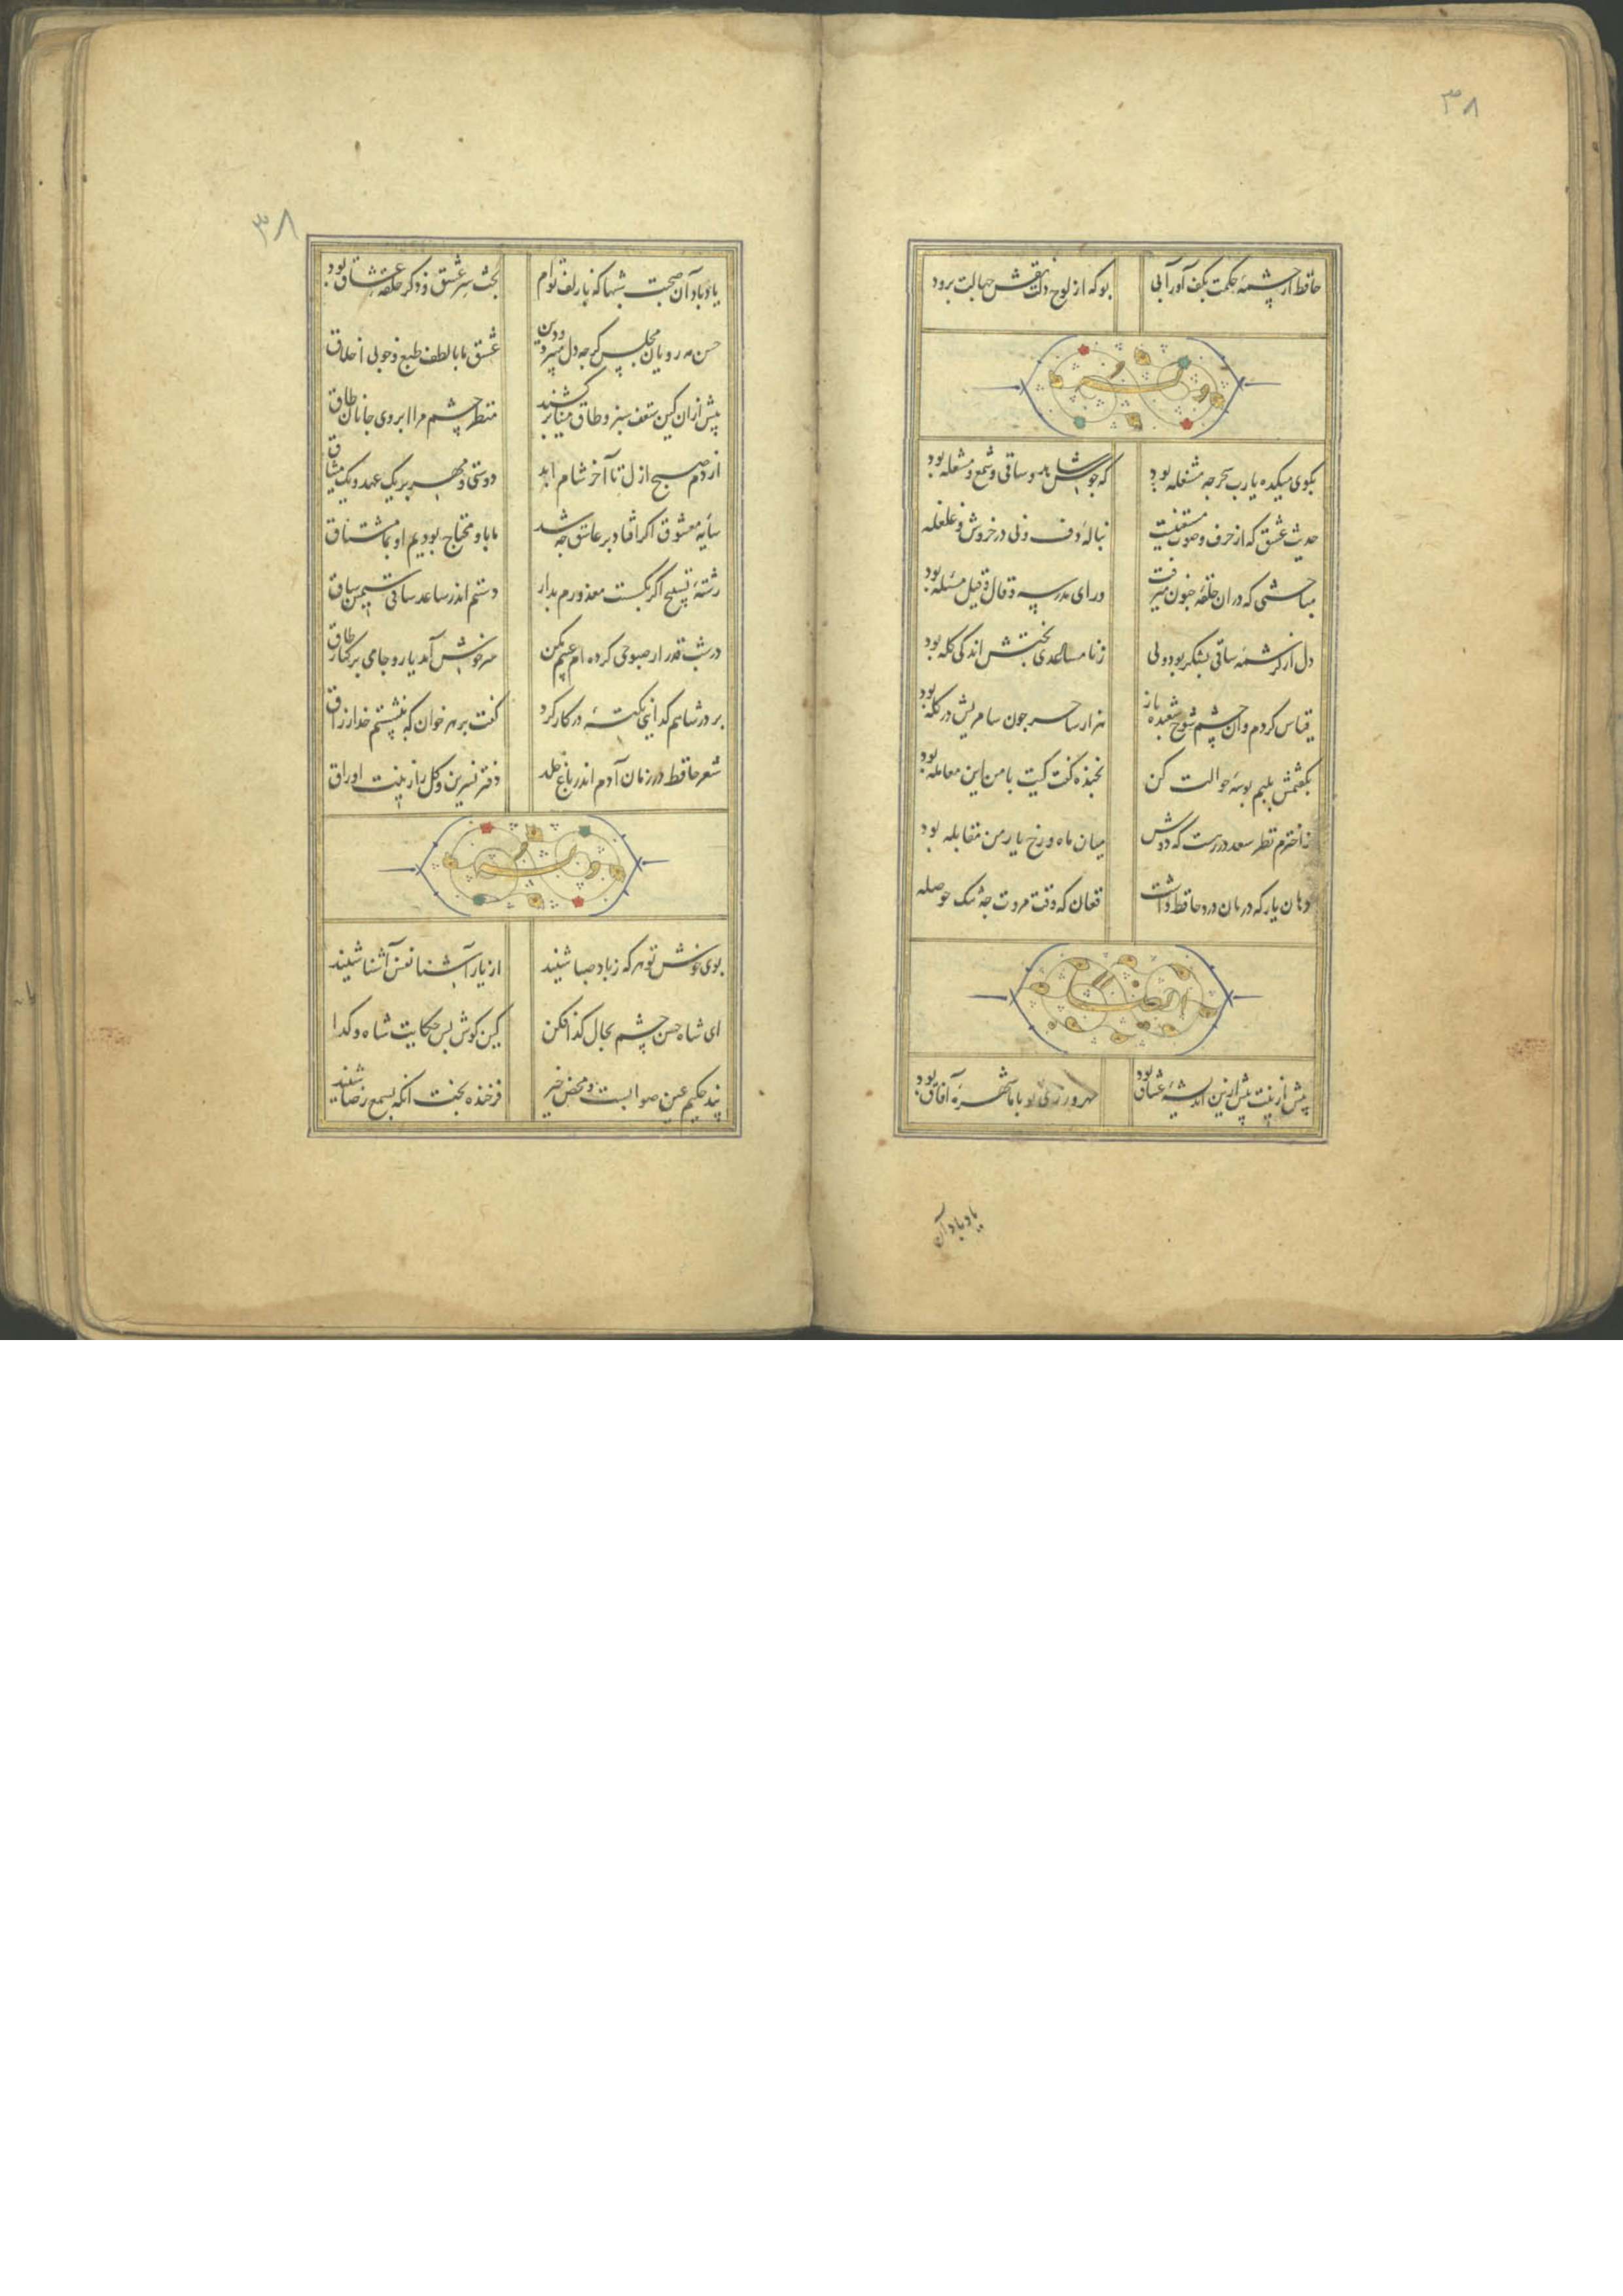 ۳۸
حافظ از چشمهٔ حکمت بکف آور آبی بو که از لوح دلت نقش جهالت برود
وله
بکوی میکده یارب سحر چه مشغله بود که جوش شاهد و ساقی و شمع و مشعله بود
حدیث عشق که از حرف و صوت مستغنیست بنالهٔ دف و نی در خروش و غلغله
مباحثی که در ان حلقهٔ جنون میرفت ورای مدرسه و قال و قیل مسئله بود
دل از کرشمهٔ ساقی بشکر بود ولی زنا مساعدی بختش اندکی گله بود
قیاس کردم و آن چشم شوخ شعبده باز هزار ساحر چون سامریش در گله بود
بگفتمش بلبم بوسهٔ حوالت کن بخنده گفت کیت با من این معامله بود
ز اخترم نظر سعد در رهست که دوش میان ماه و رخ یار من مقابله بود
دهان یار که درمان درد حافظ داشت فغان که وقت مروت چه تنک حوصله
ایضا
پیش ازینت پیش ازین اندیشهٔ عشاق بود مهرورزی تو با ما شهرهٔ آفاق بود
یاد باد آن
۳۸
یاد باد آن صحبت شبها که با زلف توام بحث سر عشق و ذکر حلقهٔ عشاق بود
حسن مه رویان مجلس گرچه دل میبرد و دین عشق ما با لطف طبع و خوبی اخلاق
پیش ازان کین سقف سبز و طاق مینا بر کشند منظر چشم مرا ابروی جانان طاق
از دم صبح ازل تا آخر شام ابد دوستی و مهر بر یک عهد و یک میثاق
سایهٔ معشوق اگر افتاد بر عاشق چه شد ما باو محتاج بودیم او بما مشتاق
رشتهٔ تسبیح اگر بگسست معذورم بدار دستم اندر ساعد ساقی سیمین ساق
در شب قدر ار صبوحی کرده ام عیبم مکن سرخوش آمد یار و جامی بر کنار طاق
بر در شاهم گدایی نکتهٔ در کار کرد گفت بر هر خوان که بنشستم خدا رزاق
شعر حافظ در زمان آدم اندر باغ خلد دفتر نسرین و گل را زینت اوراق
وله
بوی خوش تو هر که ز باد صبا شنید از یار آشنا نفس آشنا شنید
ای شاه حسن چشم بحال گدا فکن کین گوش بس حکایت شاه و گدا
پند حکیم عین صوابست و محض خیر فرخنده بخت آنکه بسمع رضا شنید